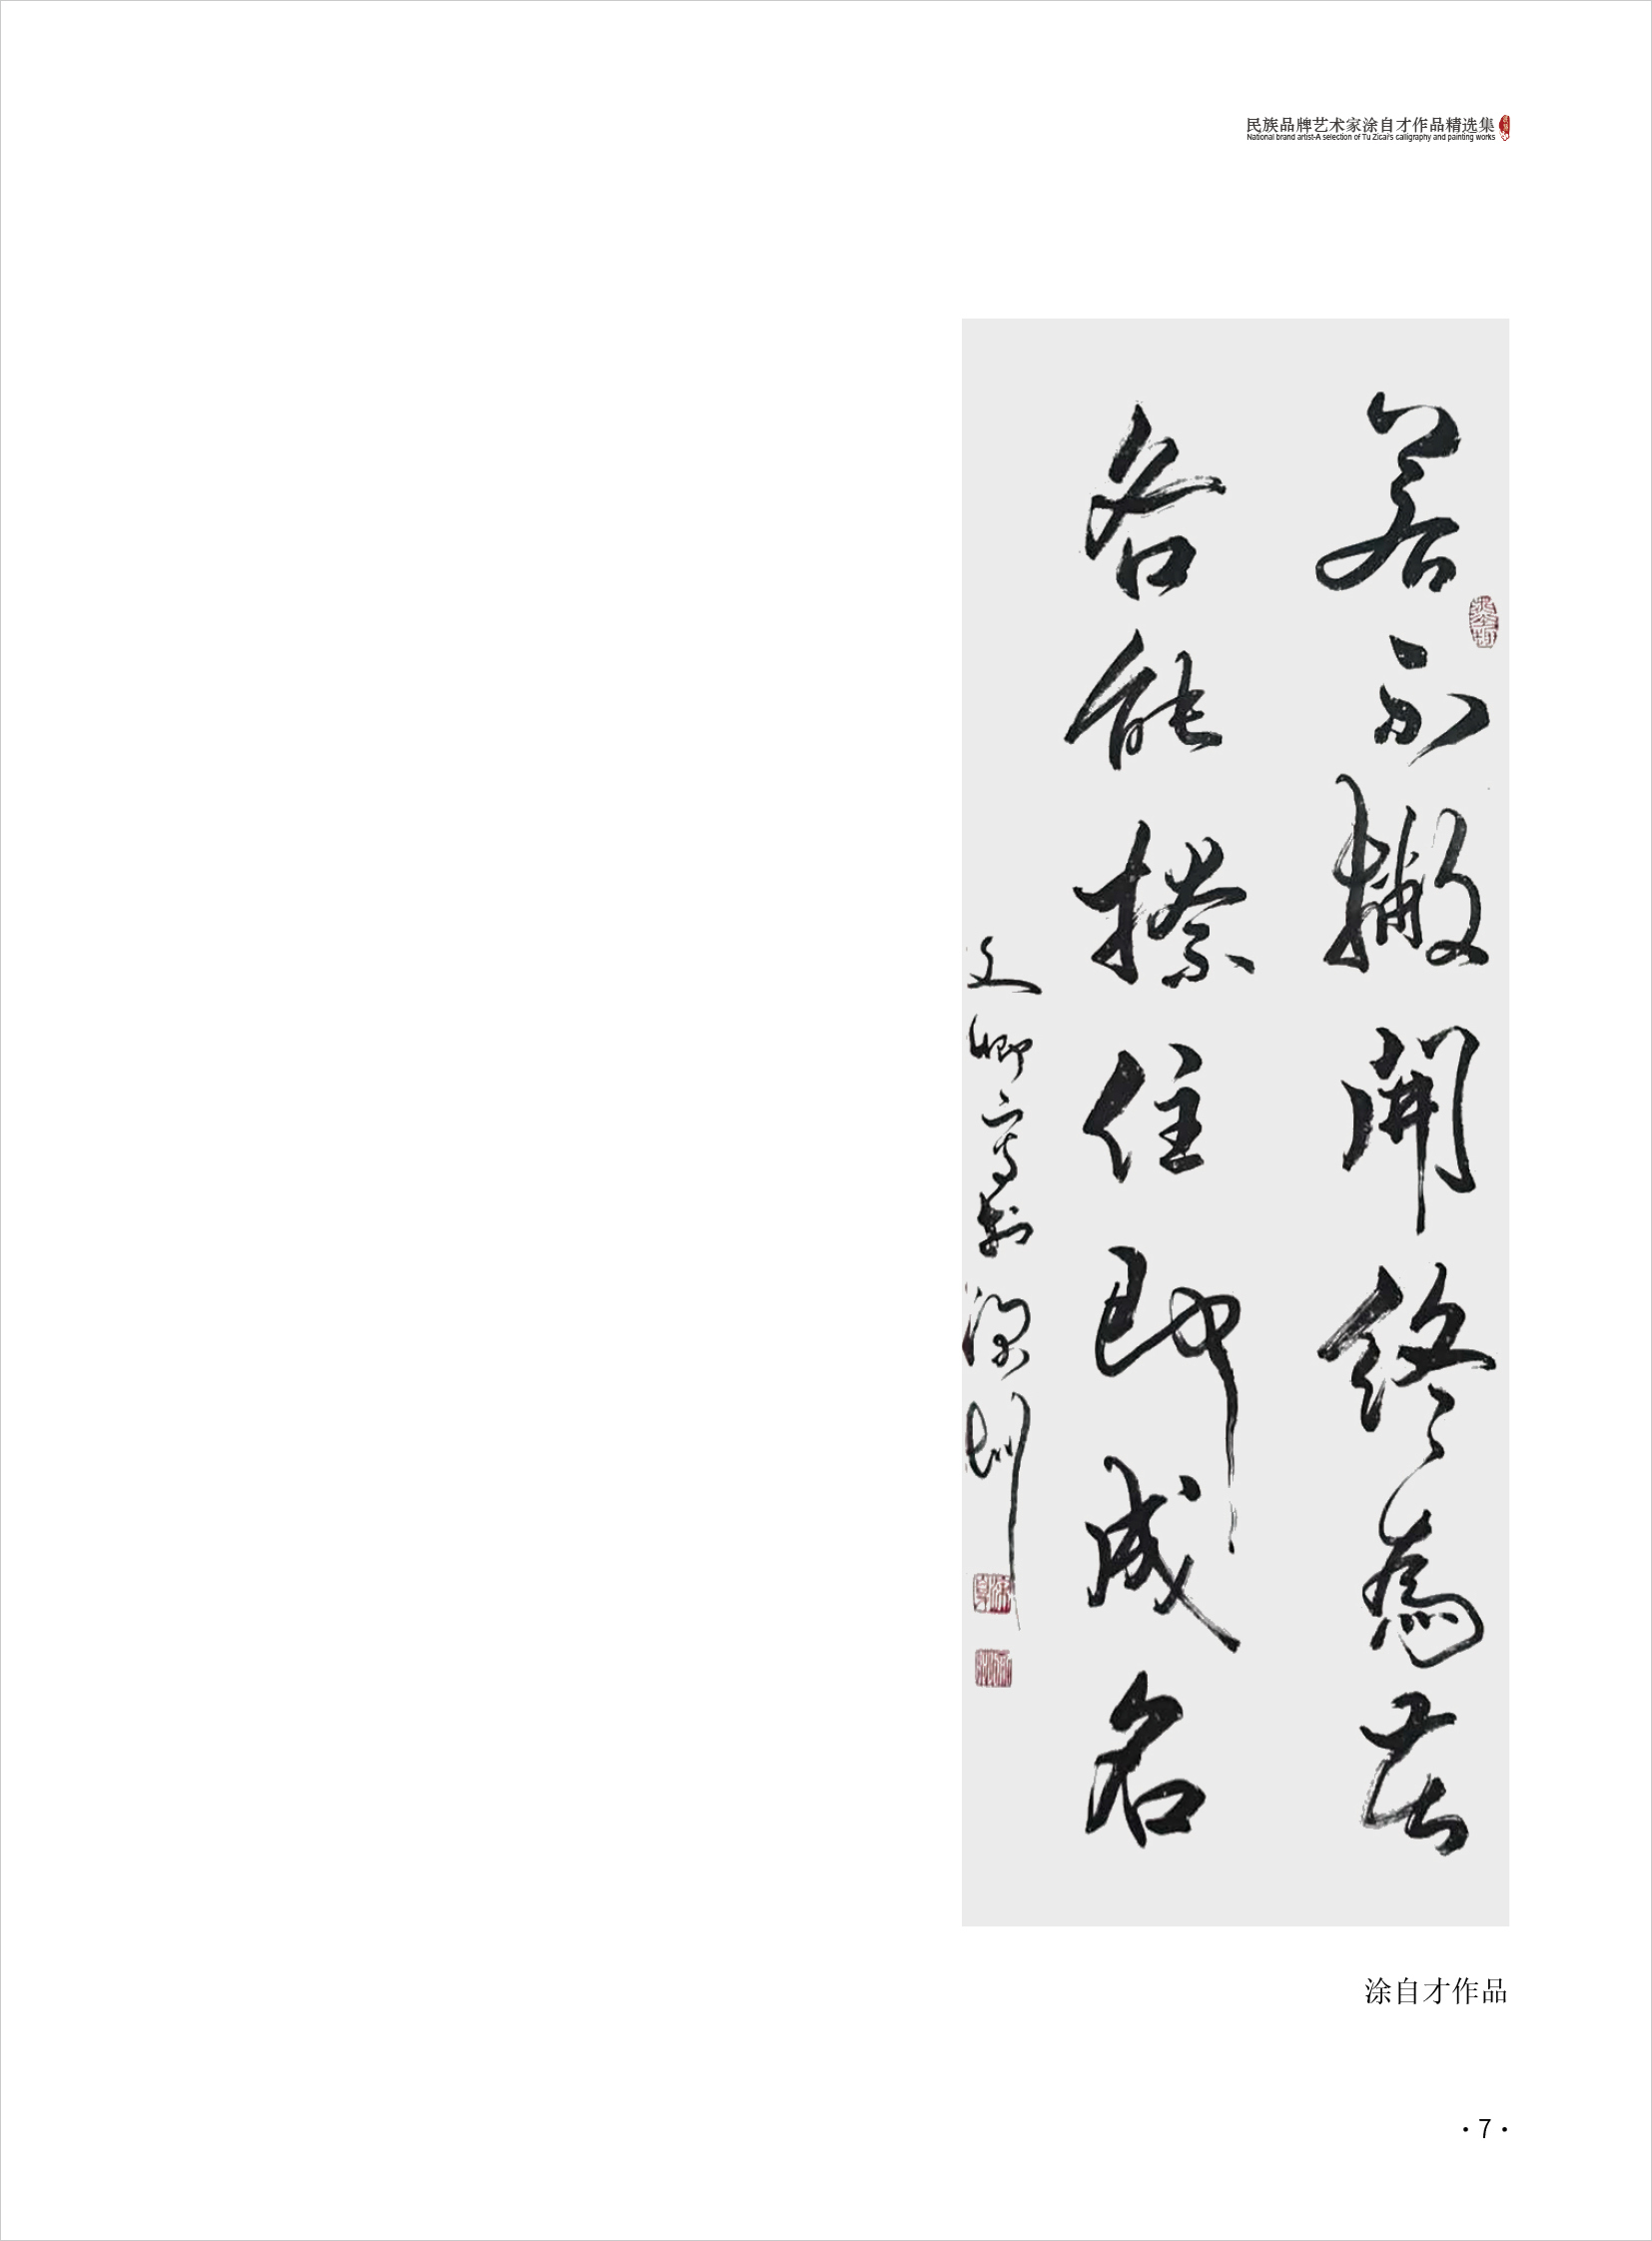 民族品牌艺术家涂自才作品精选集
National brand artist-A selection of Tu Zicai's calligraphy and painting works
若不撇開終為苦
各能捺住即成名
文卿寫於深圳
涂自才作品
·7·